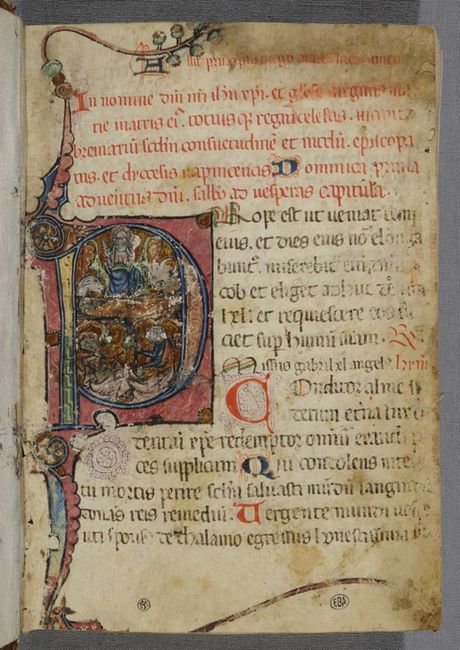 In nomine dñi nr̃i ih̃u xp̃i. et gl̃ose uirginis ma
rie matris ei'. totius q̃ regni celestis. incipit
breuiariũ sc̃dm consuetudinẽ et modũ. episcopa
tus. et dyocesis uapincensis Dominica prima
aduentus dñi. sabb̃o ad uesperas capitulũ.
Prope est ut ueniat tempus
eius. et dies eius nõ elonga
buntʳ. miserebitʳ eni dñs ia
cob et eliget adhuc de isra
hel: et requiescere eos fa
ciet suꝑ humũ suam. R.
Missus gabrihel angelꝰ hym̃
Conditor alme si
derum et̃na lux c
dentiũ xp̃e redemptor om̃iũ exaudi p
ces supplicum Qui condolens inte
tu mortis perire sc̃lm saluasti mũdũ languidũ
donãs reis remediũ. Uergente mundi uesp̃e
uti sponsꝰ de thalamo egressus honestissima
EBA